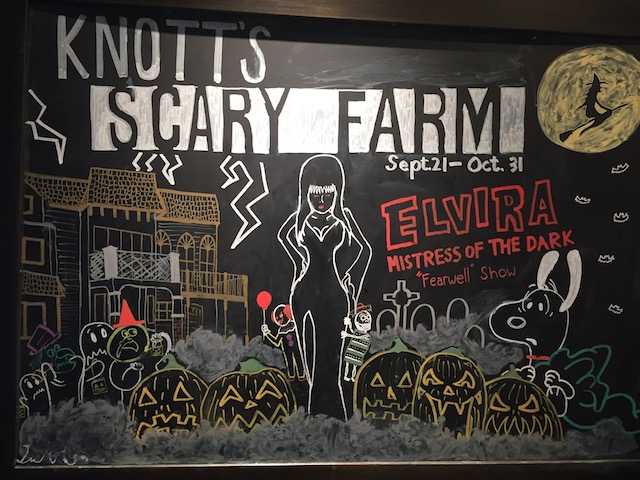 KNOTT'S
SCARY FARM
Sept.21 - Oct. 31
ELVIRA
MISTRESS OF THE DARK
"Fearwell" Show